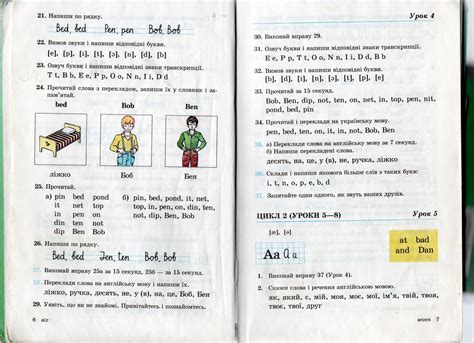 21. Напиши по рядку.
Bed, bed Pen, pen Bob, Bob
22. Вимов звуки і напиши відповідні букви.
[e], [p], [t], [ɔ], [n], [d], [b]
23. Озвуч букви і напиши відповідні знаки транскрипції.
T t, B b, E e, P p, O o, N n, I i, D d
24. Прочитай слова з перекладом, запиши їх у словник і за-
пам'ятай.
bed Bob Ben
ліжко Боб Бен
25. Прочитай.
а) pin bed pond б) pin, bed, pond, it, net,
it net top top, in, pen, on, din, ten,
in pen on not, dip, Ben, Bob
din ten not
dip Ben Bob
26. Напиши по рядку.
Bed, bed Ten, ten Bob, Bob
27. Виконай вправу 25а за 15 секунд, 25б — за 15 секунд.
28. Переклади слова на англійську мову і напиши їх.
ліжко, ручка, десять, не, у (в), на, це, Боб, Бен
29. Уявіть, що ви не знайомі. Привітайтесь і познайомтесь.
6 six
Урок 4
30. Виконай вправу 29.
31. Озвуч букви і напиши відповідні знаки транскрипції.
E e, P p, T t, O o, N n, I i, D d, B b
32. Вимов звуки і напиши відповідні букви.
[i], [b], [d], [n], [ɔ], [t], [p], [e]
33. Прочитай за 15 секунд.
Bob, Ben, dip, not, ten, on, net, in, top, pen, nit,
pond, bed, pin
34. Прочитай і переклади на українську мову.
pen, bed, ten, on, it, in, not, Bob, Ben
35. а) Переклади слова на англійську мову за 7 секунд.
б) Напиши перекладені слова.
десять, на, це, у (в), не, ручка, ліжко
36. Склади і напиши якомога більше слів з таких букв:
i, t, n, o, p, e, b, d
37. Запитайте один одного, як звуть ваших друзів.
ЦИКЛ 2 (УРОКИ 5—8) Урок 5
[æ], [ə]
Aa Aa
at bad
and Dan
1. Виконай вправу 37 (Урок 4).
2. Скажи слова і речення англійською мовою.
як, який, є, мій, моя, моє, мої, ім'я, твій, твоя,
твоє, твої
seven 7